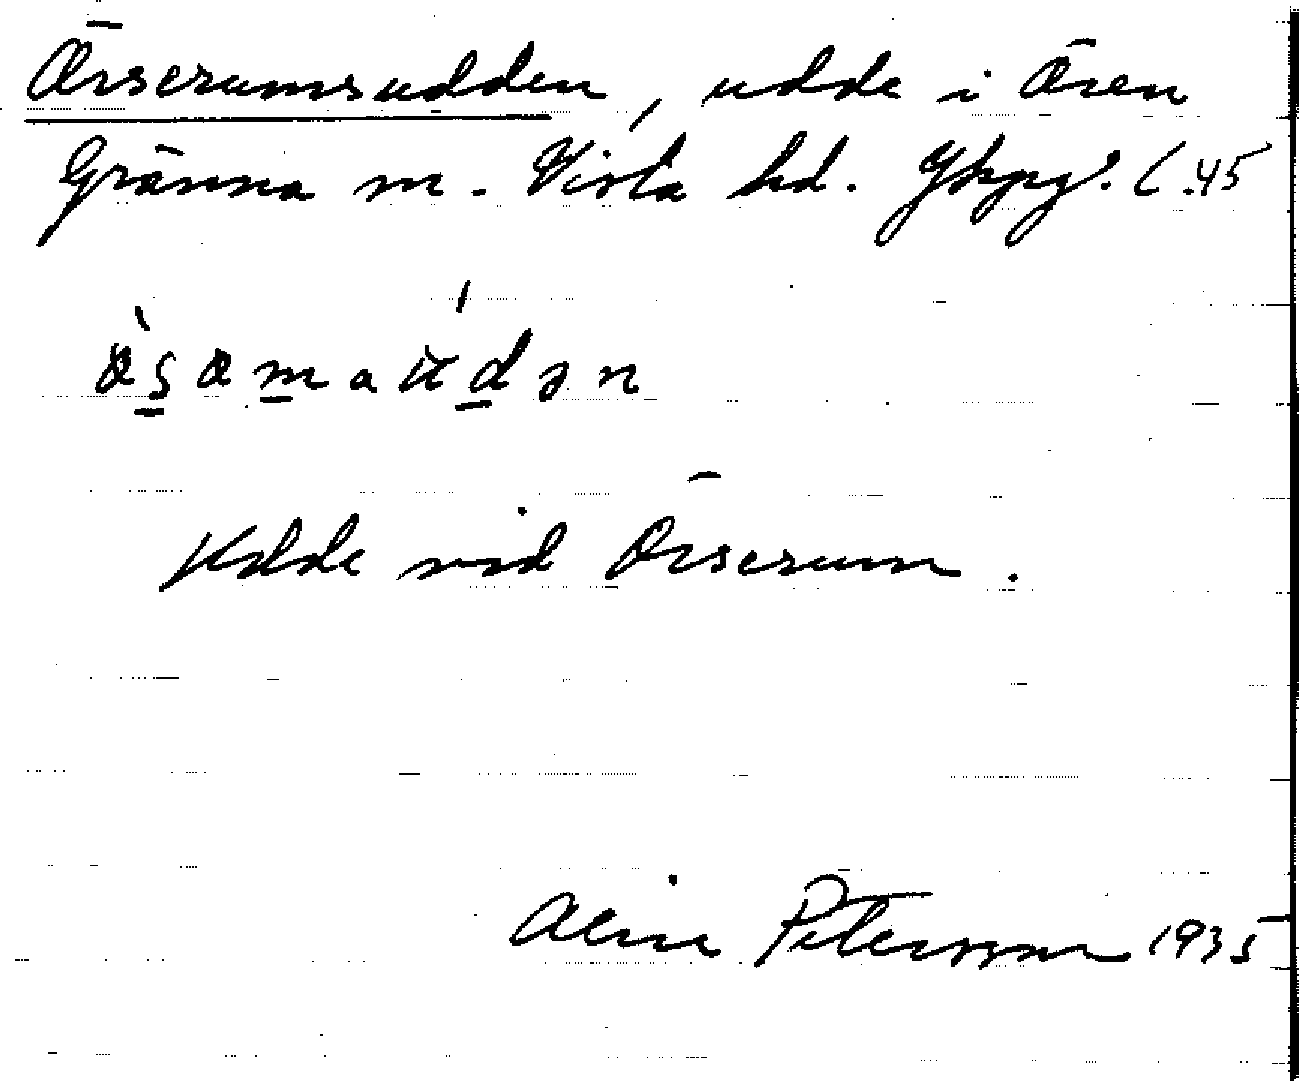 Örserumsudden, udde i Ören
Gränna m. Vista hd. Jkpgs. l. 45
Udde vid Örserum.
Aline Petersson 1935